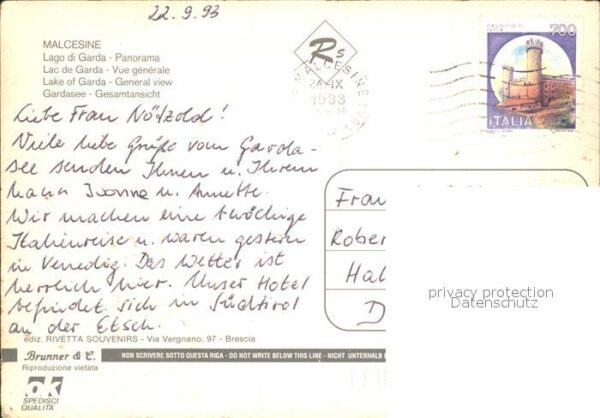 22.9.93
MALCESINE
Lago di Garda - Panorama
Lac de Garda - Vue générale
Lake of Garda - General view
Gardasee - Gesamtansicht
Rs
MALCESINE
24-IX
1993
700
ITALIA
Liebe Frau Nötzold!
Viele liebe Grüße vom Garda-
see senden Ihnen u. Ihrem
Mann Ivonne u. Annette.
Wir machen eine 8wöchige
Italienreise u. waren gestern
in Venedig. Das Wetter ist
herrlich hier. Unser Hotel
befindet sich in Südtirol
an der Etsch.
Frau
Rober
Hal
D
privacy protection
Datenschutz
ediz. RIVETTA SOUVENIRS - Via Vergnano, 97 - Brescia
Brunner & C.
Riproduzione vietata
NON SCRIVERE SOTTO QUESTA RIGA - DO NOT WRITE BELOW THIS LINE - NICHT UNTERHALB
ok
SPEDISCI
QUALITÀ